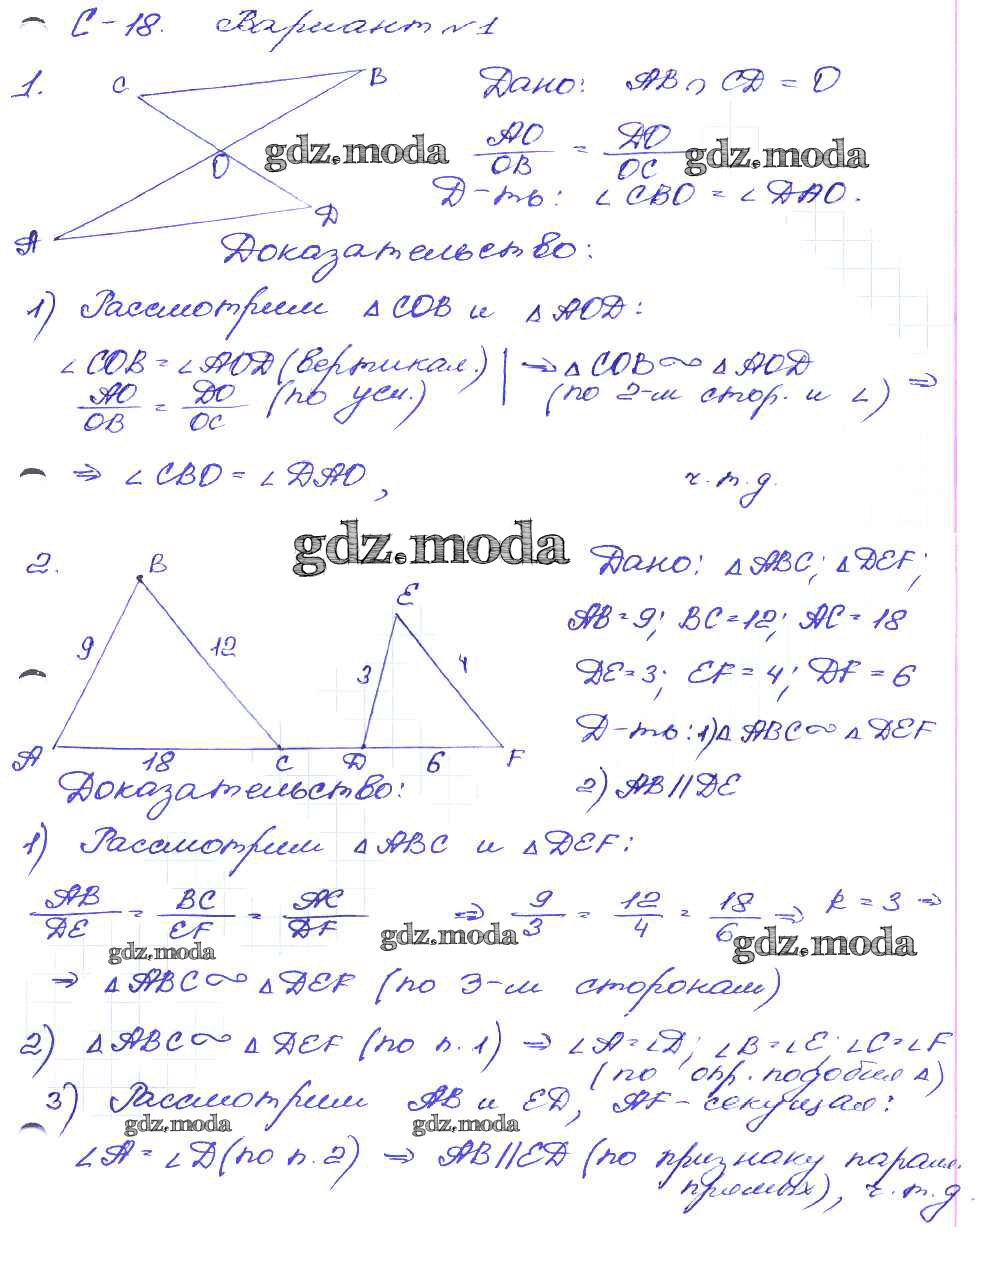 С-18. Вариант №1
1. C B Дано: AB ∩ CD = O
gdz.moda
O
AO/OB = DO/OC
gdz.moda
Д-ть: ∠CBO = ∠DAO.
A D
Доказательство:
1) Рассмотрим △COB и △AOD:
∠COB = ∠AOD (вертикал.) | ⇒ △COB ∾ △AOD
AO/OB = DO/OC (по усл.) | (по 2-м стор. и ∠) ⇒
⇒ ∠CBO = ∠DAO, ч.т.д.
gdz.moda
2. B Дано: △ABC; △DEF;
E
AB=9; BC=12; AC=18
9 12 3 4
DE=3; EF=4; DF=6
Д-ть: 1) △ABC ∾ △DEF
A 18 C D 6 F
2) AB//DE
Доказательство:
1) Рассмотрим △ABC и △DEF:
AB/DE = BC/EF = AC/DF ⇒ 9/3 = 12/4 = 18/6 ⇒ k = 3 ⇒
gdz.moda gdz.moda gdz.moda
⇒ △ABC ∾ △DEF (по 3-м сторонам)
2) △ABC ∾ △DEF (по п.1) ⇒ ∠A=∠D; ∠B=∠E; ∠C=∠F
(по опр. подобия △)
3) Рассмотрим AB и ED, AF-секущая:
gdz.moda gdz.moda
∠A = ∠D (по п.2) ⇒ AB//ED (по признаку парал.
прямых), ч.т.д.